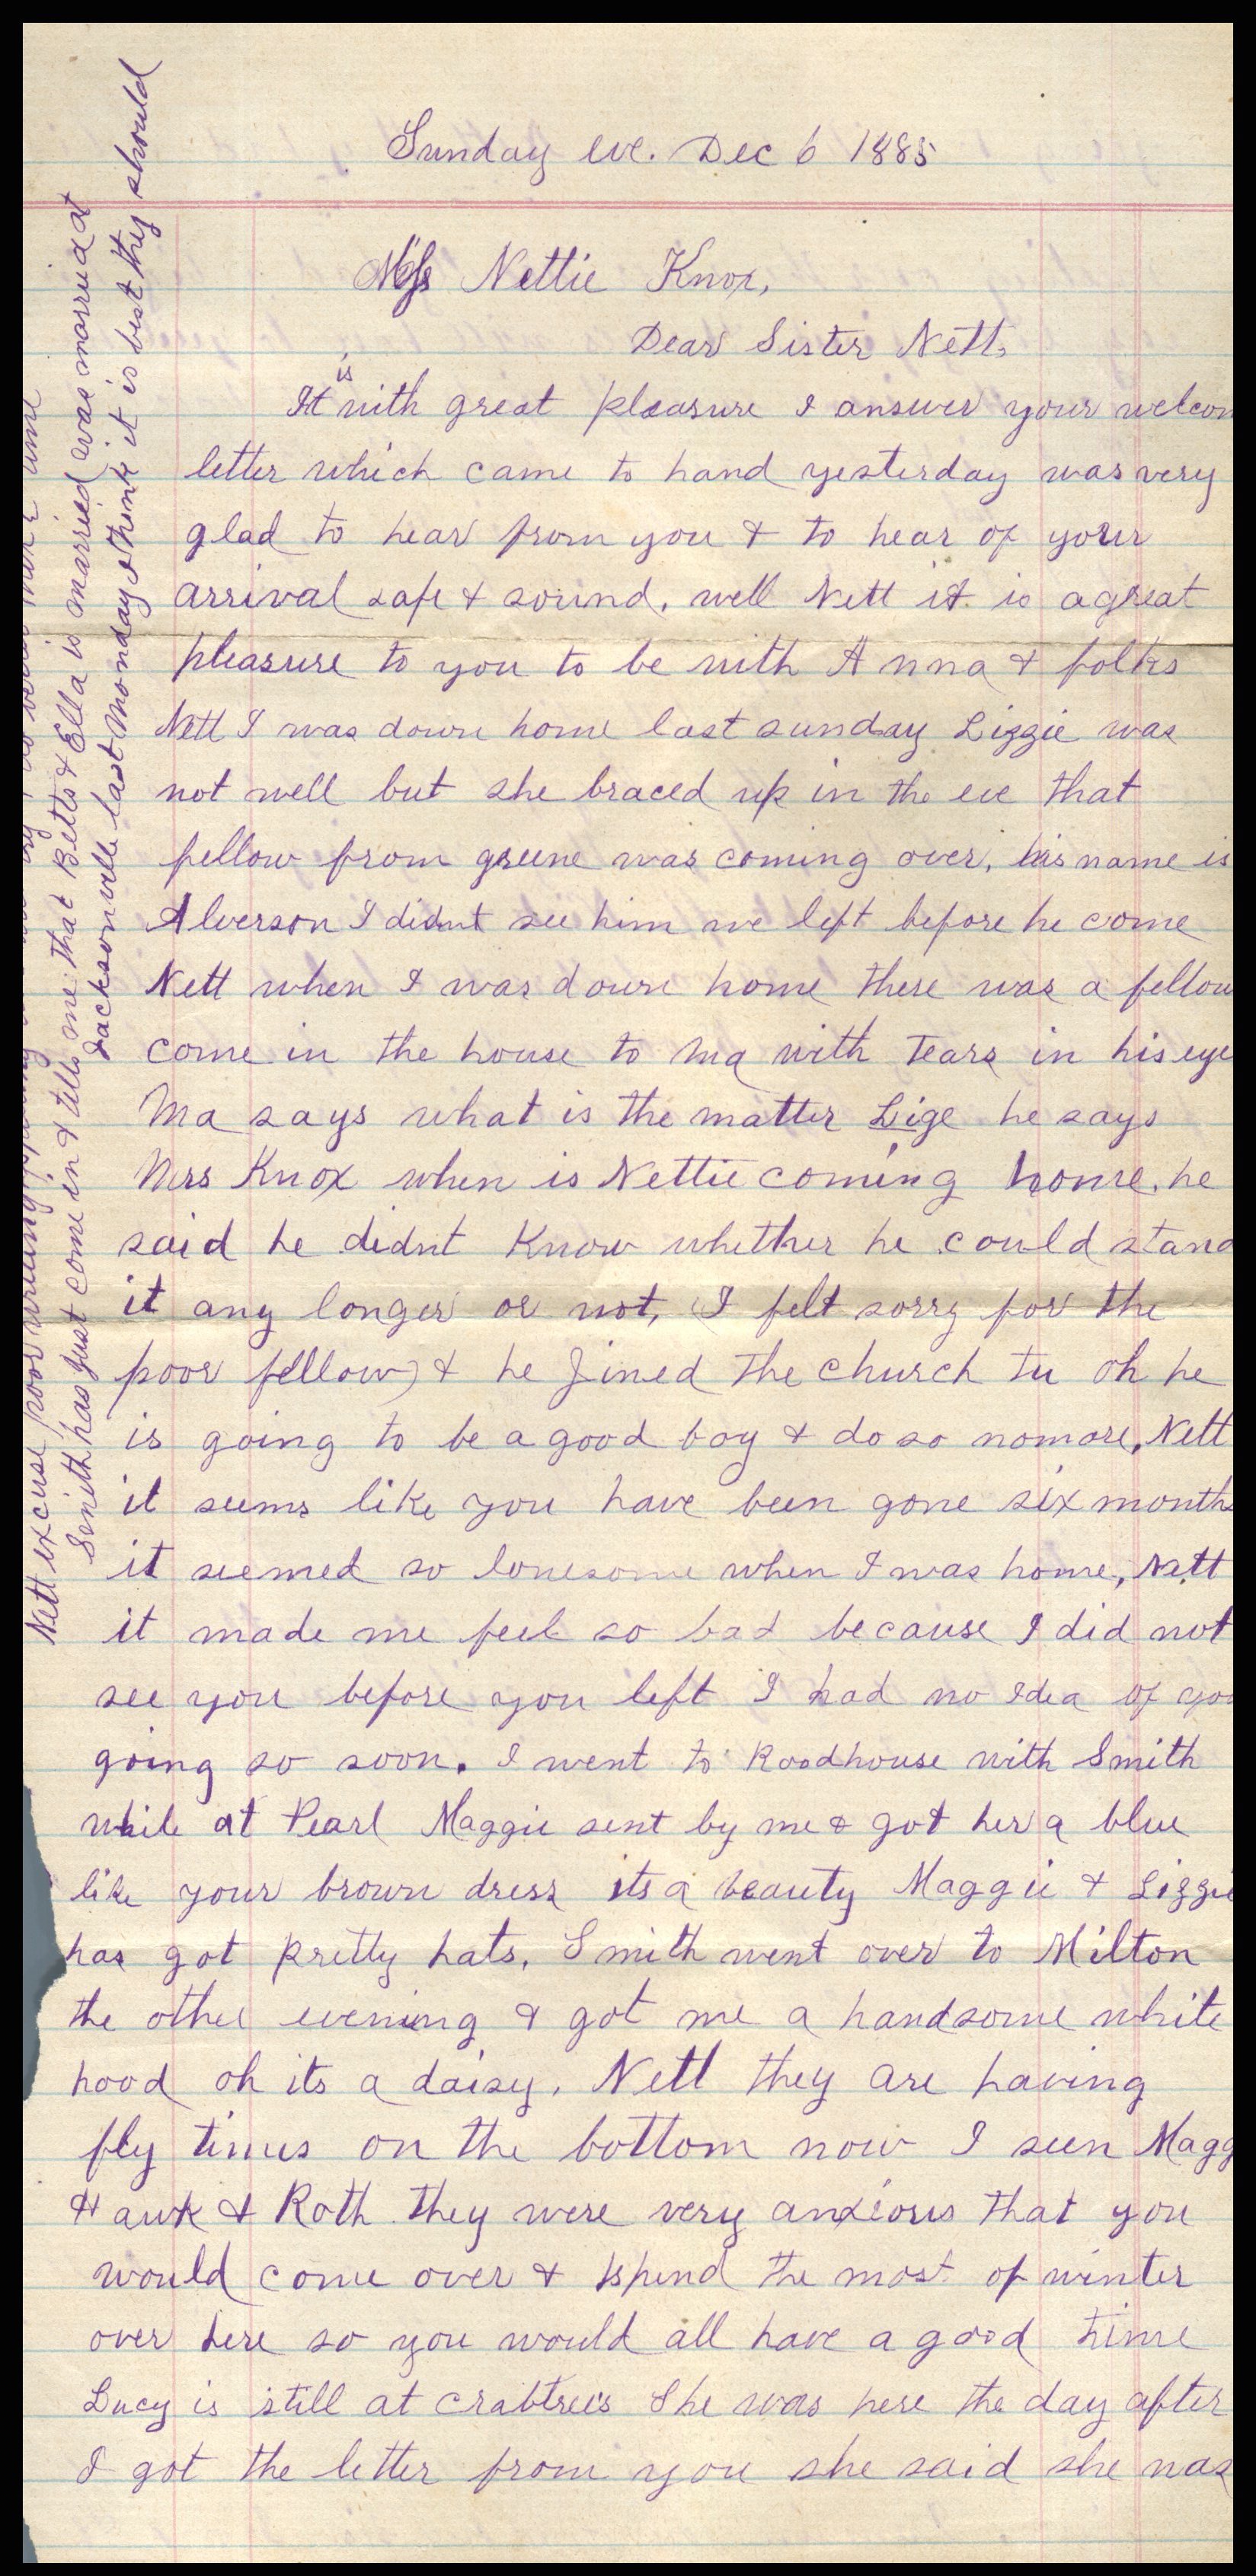 Sunday eve. Dec 6 1885
Miss Nettie Knox,
Dear Sister Nett,
is
It with great pleasure I answer your welcom
letter which came to hand yesterday was very
glad to hear from you & to hear of your
arrival safe & sound. well Nett it is a great
pleasure to you to be with Anna & folks
Nett I was down home last sunday Lizzie was
not well but she braced up in the eve that
fellow from greene was coming over, his name is
Alverson I didnt see him we left before he come
Nett when I was down home there was a fellow
come in the house to Ma with Tears in his eye
Ma says what is the matter Lige he says
Mrs Knox when is Nettie coming home, he
said he didnt Know whether he could stand
it any longer or not, (I felt sorry for the
poor fellow) & he Jined the church tu oh he
is going to be a good boy & do so nomore, Nett
it seems like you have been gone six months
it seemed so lonesome when I was home, Nett
it made me feel so bad because I did not
see you before you left I had no Idea of you
going so soon. I went to Roodhouse with Smith
while at Pearl Maggie sent by me & got her a blue
like your brown dress its a beauty Maggie & Lizzie
has got pretty hats, Smith went over to Milton
the other evening & got me a handsome white
hood oh its a daisy, Nett they are having
fly times on the bottom now I seen Magg
Hawk & Roth they were very anxious that you
would come over & spend the most of winter
over here so you would all have a good time
Lucy is still at Crabtrees She was here the day after
I got the letter from you she said she was
Nett excuse poor writing more time
Smith has just come in & tells me that Betts & Ella is married was married at
Jacksonville last Monday I think it is best they should